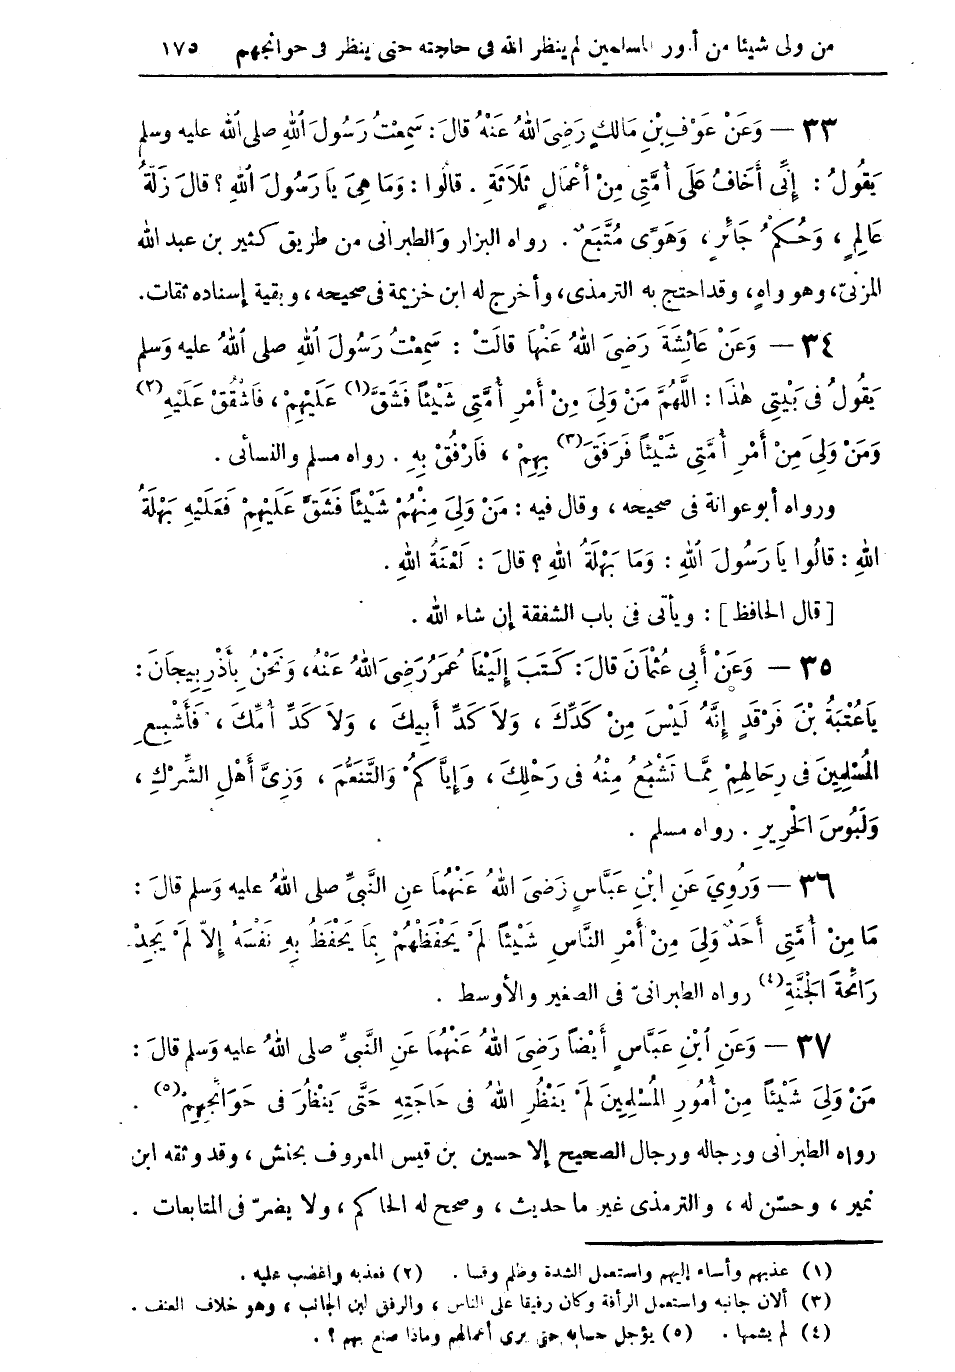 من ولى شيئا من أمور المسلمين لم ينظر الله فى حاجته حتى ينظر فى حوائجهم ١٧٥
٣٣ — وَعَنْ عَوْفِ بْنِ مَالِكٍ رَضِىَ اللهُ عَنْهُ قَالَ: سَمِعْتُ رَسُولَ اللهِ صلى الله عليه وسلم
يَقُولُ: إِنِّى أَخَافُ عَلَى أُمَّتِى مِنْ أَعْمَالٍ ثَلَاثَةٍ. قالُوا: وَمَا هِىَ يَا رَسُولَ اللهِ؟ قالَ زَلَّةُ
عَالِمٍ، وَحُكْمٌ جَائِرٌ، وَهَوًى مُتَّبَعٌ. رواه البزار والطبرانى من طريق كثير بن عبد الله
المزنىّ، وهو واهٍ، وقد احتج به الترمذى، وأخرج له ابن خزيمة فى صحيحه، وبقية إسناده ثقات.
٣٤ — وَعَنْ عَائِشَةَ رَضِىَ اللهُ عَنْهَا قالَتْ: سَمِعْتُ رَسُولَ اللهِ صلى اللهُ عليه وَسلم
يَقُولُ فِى بَيْتِى هٰذَا: اللَّهُمَّ مَنْ وَلِىَ مِنْ أَمْرِ أُمَّتِى شَيْئاً فَشَقَّ(١) عَلَيْهِمْ، فَاشْقُقْ عَلَيْهِ(٢)
وَمَنْ وَلِىَ مِنْ أَمْرِ أُمَّتِى شَيْئاً فَرَفَقَ(٣) بِهِمْ، فَارْفُقْ بِهِ. رواه مسلم والنسائى.
ورواه أبو عوانة فى صحيحه، وقال فيه: مَنْ وَلِىَ مِنْهُمْ شَيْئاً فَشَقَّ عَلَيْهِمْ فَعَلَيْهِ بَهْلَةُ
اللهِ: قالُوا يَا رَسُولَ اللهِ: وَمَا بَهْلَةُ اللهِ؟ قالَ: لَعْنَةُ اللهِ.
[قال الحافظ]: ويأتى فى باب الشفقة إن شاء الله.
٣٥ — وَعَنْ أَبِى عُثْمَانَ قالَ: كَتَبَ إِلَيْنَا عُمَرُ رَضِىَ اللهُ عَنْهُ، وَنَحْنُ بِأَذْرِبِيجَانَ:
يَاعُتْبَةُ بْنَ فَرْقَدٍ إِنَّهُ لَيْسَ مِنْ كَدِّكَ، وَلاَ كَدِّ أَبِيكَ، وَلاَ كَدِّ أُمِّكَ، فَأَشْبِعِ
المُسْلِمِينَ فى رِحَالِهِمْ مِمَّا تَشْبَعُ مِنْهُ فى رَحْلِكَ، وَإِيَّاكُمْ وَالتَّنَعُّمَ، وَزِىَّ أَهْلِ الشِّرْكِ،
وَلَبُوسَ الحَرِيرِ. رواه مسلم.
٣٦ — وَرُوِىَ عَنِ ابْنِ عَبَّاسٍ رَضِىَ اللهُ عَنْهُمَا عَنِ النَّبِىِّ صلى اللهُ عليه وَسلم قالَ:
مَا مِنْ أُمَّتِى أَحَدٌ وَلِىَ مِنْ أَمْرِ النَّاسِ شَيْئاً لَمْ يَحْفَظْهُمْ بِمَا يَحْفَظُ بِهِ نَفْسَهُ إِلاَّ لَمْ يَجِدْ
رَائِحَةَ الجَنَّةِ(٤) رواه الطبرانىّ فى الصغير والأوسط.
٣٧ — وَعَنِ ابْنِ عَبَّاسٍ أَيْضاً رَضِىَ اللهُ عَنْهُمَا عَنِ النَّبىِّ صلى اللهُ عليه وَسلم قالَ:
مَنْ وَلِىَ شَيْئاً مِنْ أُمُورِ المُسْلِمِينَ لَمْ يَنْظُرِ اللهُ فى حَاجَتِهِ حَتَّى يَنْظُرَ فى حَوَائِجِهِمْ(٥).
رواه الطبرانى ورجاله ورجال الصحيح إلا حسين بن قيس المعروف بحنش، وقد وثقه ابن
نمير، وحسّن له، والترمذى غير ما حديث، وصحح له الحاكم، ولا يضرّ فى المتابعات.
(١) عذبهم وأساء إليهم واستعمل الشدة وظلم وقسا. (٢) فعذبه واغضب عليه.
(٣) ألان جانبه واستعمل الرأفة وكان رفيقا على الناس، والرفق لين الجانب، وهو خلاف العنف.
(٤) لم يشمها. (٥) يؤجل حسابه حتى يرى أعمالهم وماذا صنع بهم؟.